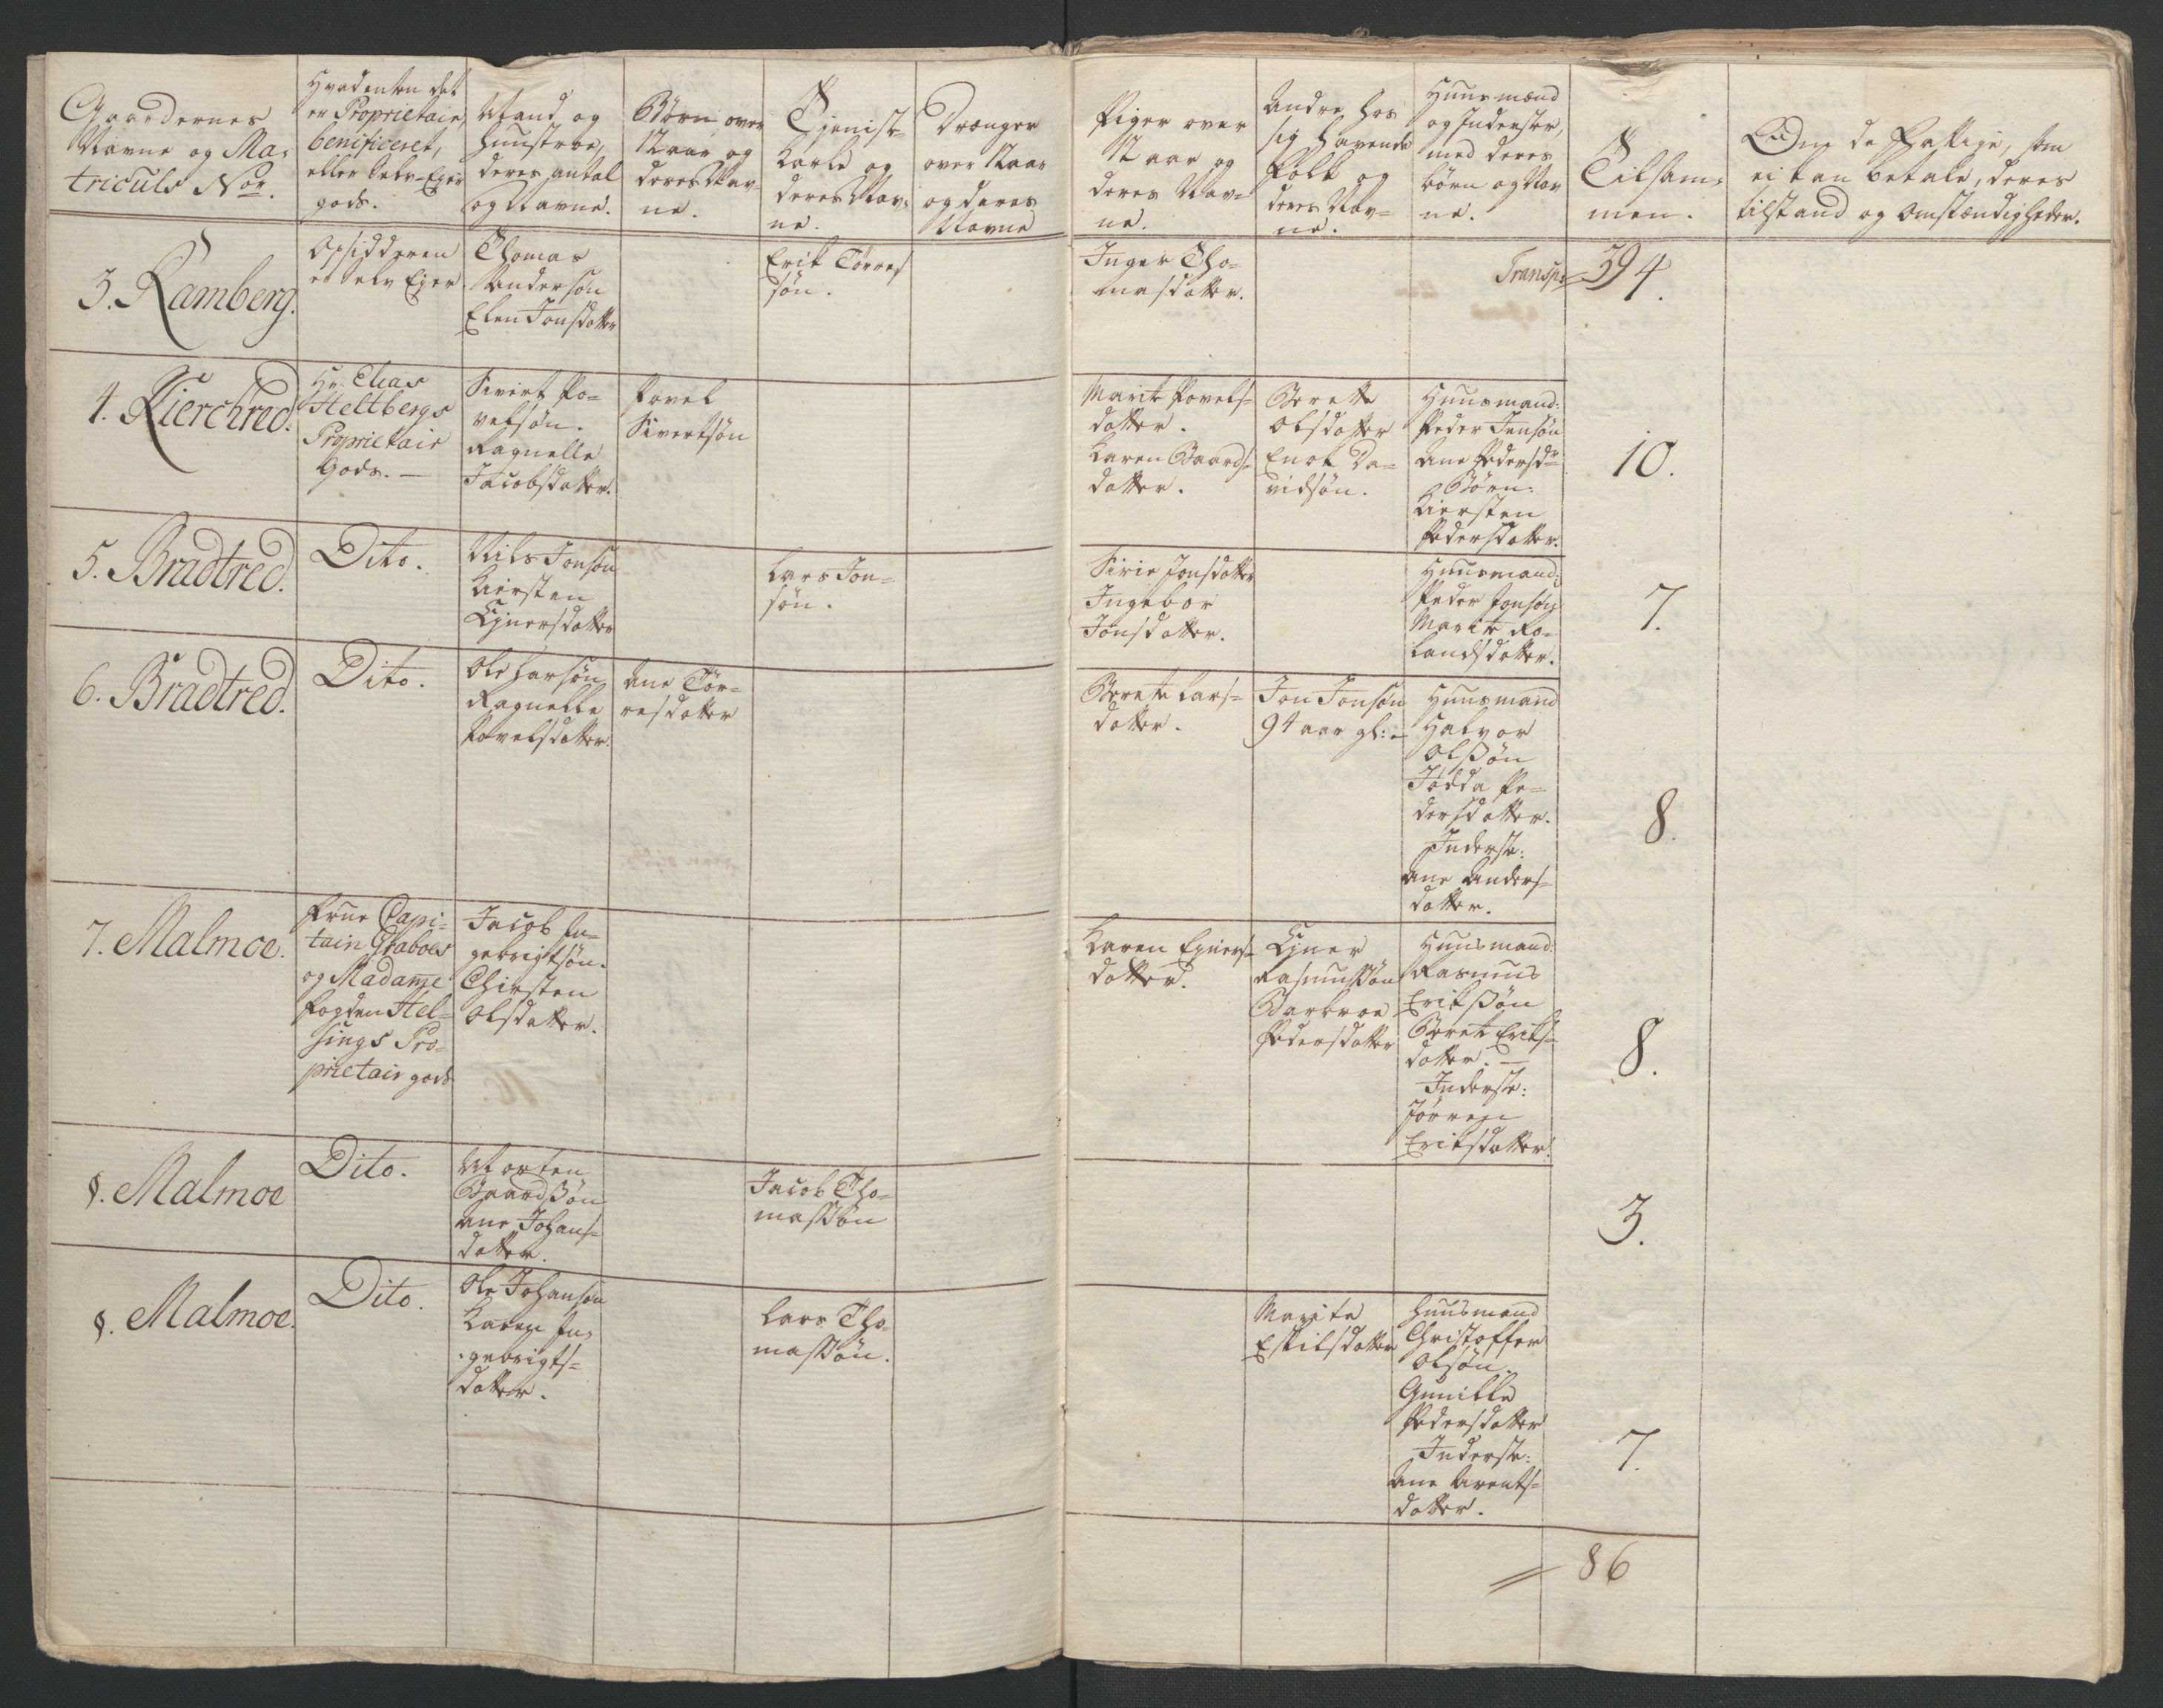 Gaardernes
Navne og Ma-
triculs Nor.
Hvadenten det
er Proprietair,
benificeret,
eller Selv-Ejer
gods.
Mand og
Hunstroe,
deres antal
og Navne.
Børn over
12 aar og
deres Nav-
ne.
Tieniste
Karle og
deres Nav-
ne.
Drænger
over 12 aar
og deres
Navne
Piger over
12 aar og
deres Nav-
ne.
Andre hos
sig havende
Folk og
deres Nav-
ne.
Huusmænd
og Inderster,
med deres
børn og Nav
ne.
Tilsam-
men.
Om de Fattige, som
ei kan betale, deres
tilstand og omstændigheder.
3. Ramberg.
Opsidderen
er Selv Ejer
Thomas
Anderson
Elen Jonsdatter
Erik Torres
søn.
Inger Tho-
masdatter.
Transp. 394.
4. Kierchred.
Hr. Elias
Heltbergs
Proprietair
Gods. —
Sivert Po-
velsøn.
Ragnelle
Jacobsdatter.
Povel
Sivertsøn
Marit Povels-
datter.
Karen Baards-
datter.
Berette
Olsdatter
Enok Da-
vidsøn.
Huusmand:
Peder Jensøn
Ane Pedersdr
Børn:
Kiersten
Pedersdatter.
10.
5. Bradtred.
Dito.
Nils Jonson
Kiersten
Ejnersdatter
Lars Jon-
søn.
Sirie Jonsdatter
Ingebor
Jonsdatter.
Huusmand:
Peder Jonsøn
Marite Ro-
landsdatter.
7.
6. Bradtred.
Dito.
Ole Larsøn
Ragnelle
Povelsdatter.
Ane Tør-
resdatter
Berete Lars-
datter.
Jon Jonsøn
94 aar gl: —
Huusmand
Halvor
Olssøn
Jødda Pe-
dersdatter.
Inderste:
Ane Anders-
datter.
8.
7. Malmoe.
Frue Capi-
tain Grabous
og Madame
Fogden Hel-
sings Pro-
prietair gods
Jacob In-
gebrigtsøn.
Chirsten
Olsdatter.
Karen Ejners-
datter.
Ejner
Rasmussøn
Barbroe
Pedersdatter
Huusmand:
Rasmus
Erikssøn
Beret Eriks-
datter. —
Inderste:
Jørren
Eriksdatter.
8.
8. Malmoe
Dito.
Morten
Baardssøn
Ane Johans-
datter.
Jacob Tho-
massøn
3.
8. Malmoe.
Dito.
Ole Johansøn
Karen In-
gebrigts-
datter.
Lars Tho-
massøn.
Marite
Eskilsdatter
Huusmand
Christoffer
Olsøn.
Gunille
Pedersdatter
Inderste:
Ane Arents-
datter.
7.
86